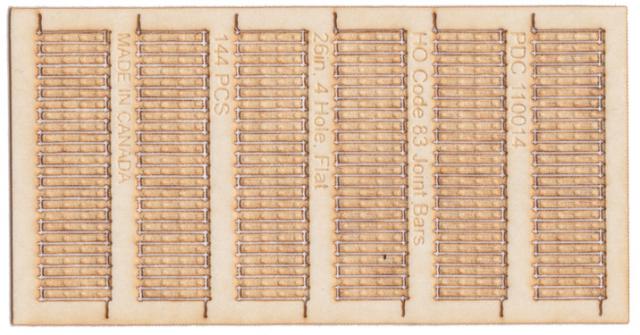 PDC 110014
HO Code 83 Joint Bars
26in. 4 Hole, Flat
144 PCS
MADE IN CANADA